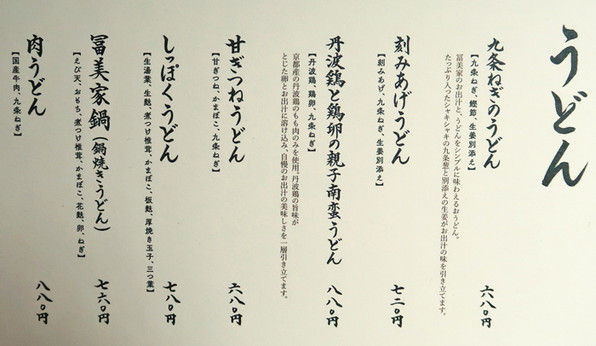 うどん
九条ねぎのうどん
【九条ねぎ、鰹節、生姜別添え】
冨美家のお出汁と、うどんをシンプルに味わえるおうどん。
たっぷり入ったシャキシャキの九条葱と別添えの生姜がお出汁の味を引き立てます。
六八〇円
刻みあげうどん
【刻みあげ、九条ねぎ、生姜別添え】
七二〇円
丹波鶏と鶏卵の親子南蛮うどん
【丹波鶏、鶏卵、九条ねぎ】
京都産の丹波鶏のもも肉のみを使用。丹波鶏の旨味が
とじた卵とお出汁に溶け込み、自慢のお出汁の美味しさを一層引き立てます。
八八〇円
甘ぎつねうどん
【甘ぎつね、かまぼこ、九条ねぎ】
六八〇円
しっぽくうどん
【生湯葉、生麩、煮つけ椎茸、かまぼこ、板麩、厚焼き玉子、三つ葉】
七八〇円
冨美家鍋(鍋焼きうどん)
【えび天、おもち、煮つけ椎茸、かまぼこ、花麩、卵、ねぎ】
七六〇円
肉うどん
【国産牛肉、九条ねぎ】
八八〇円